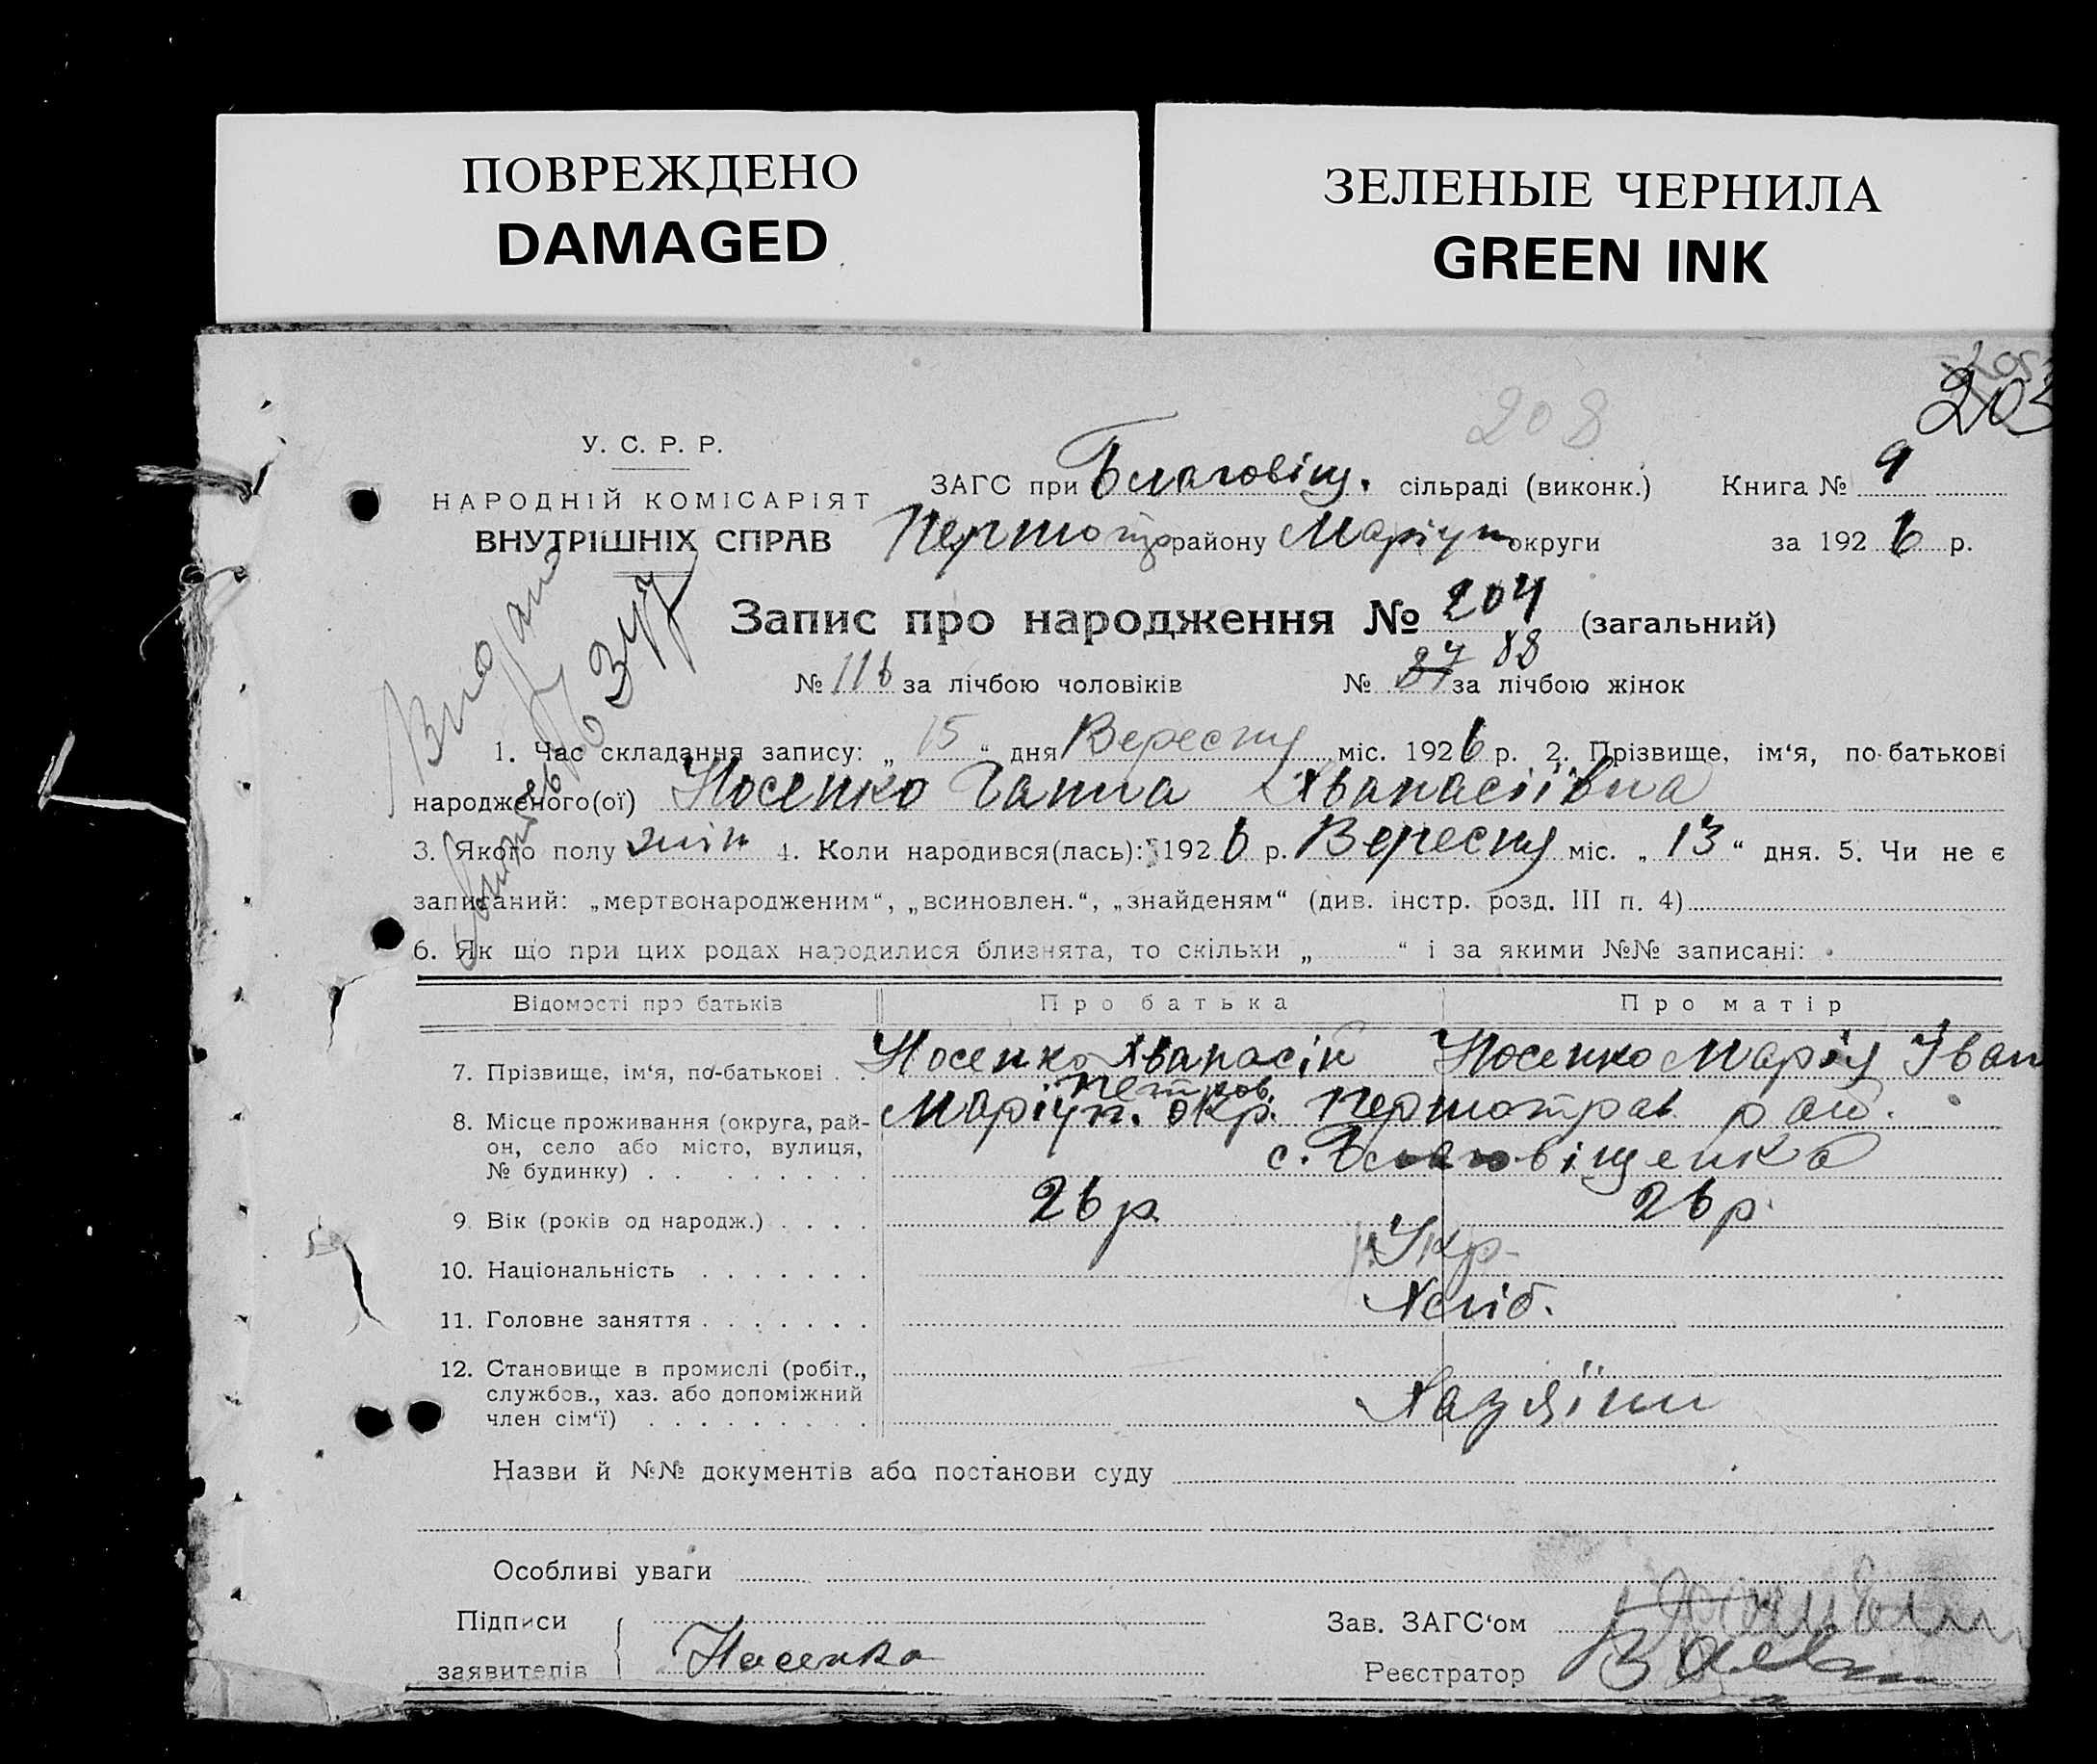 ПОВРЕЖДЕНО
DAMAGED
ЗЕЛЕНЫЕ ЧЕРНИЛА
GREEN INK
203
208
У. С. Р. Р.
НАРОДНІЙ КОМІСАРІЯТ
ВНУТРІШНІХ СПРАВ
ЗАГС при Благовіщ. сільраді (виконк.) Книга № 9
Першотр району Маріуп округи за 1926 р.
Запис про народження № 204 (загальний)
№ 116 за лічбою чоловіків № 87 88 за лічбою жінок
1. Час складання запису: „ 15 “ дня Вересня міс. 1926 р. 2. Прізвище, ім‘я, по-батькові
народженого(ої) Носенко Ганна Хванасіївна
3. Якого полу жін 4. Коли народився(лась): 1926 р. Вересня міс. „ 13 “ дня. 5. Чи не є
записаний: „мертвонародженим“, „всиновлен.“, „знайденям“ (див. інстр. розд. III п. 4)
6. Як що при цих родах народилися близнята, то скільки „ “ і за якими №№ записані:
Відомості про батьків Про батька Про матір
7. Прізвище, ім‘я, по-батькові . . Носенко Хванасій Петров. Носенко Марія Іван
8. Місце проживання (округа, рай- Маріуп. окр. Першотрав. рай.
он, село або місто, вулиця, с. Благовіщенка
№ будинку) . . . . . . . . .
9. Вік (років од народж.) . . . . 26 р. 26 р.
10. Національність . . . . . . . Укр.
11. Головне заняття . . . . . . . Хліб.
12. Становище в промислі (робіт.,
службов., хаз. або допоміжний Хазяїни
член сім‘ї) . . . . . . . . .
Назви й №№ документів або постанови суду
Особливі уваги
Підписи Зав. ЗАГС‘ом
заявителів Носенко Реєстратор